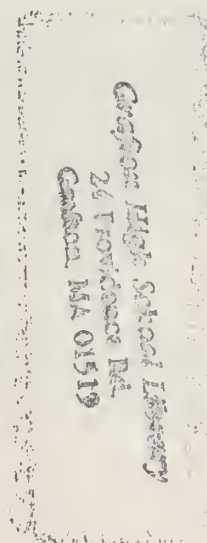 Grafton High School Library
24 Providence Rd.
Grafton MA 01519